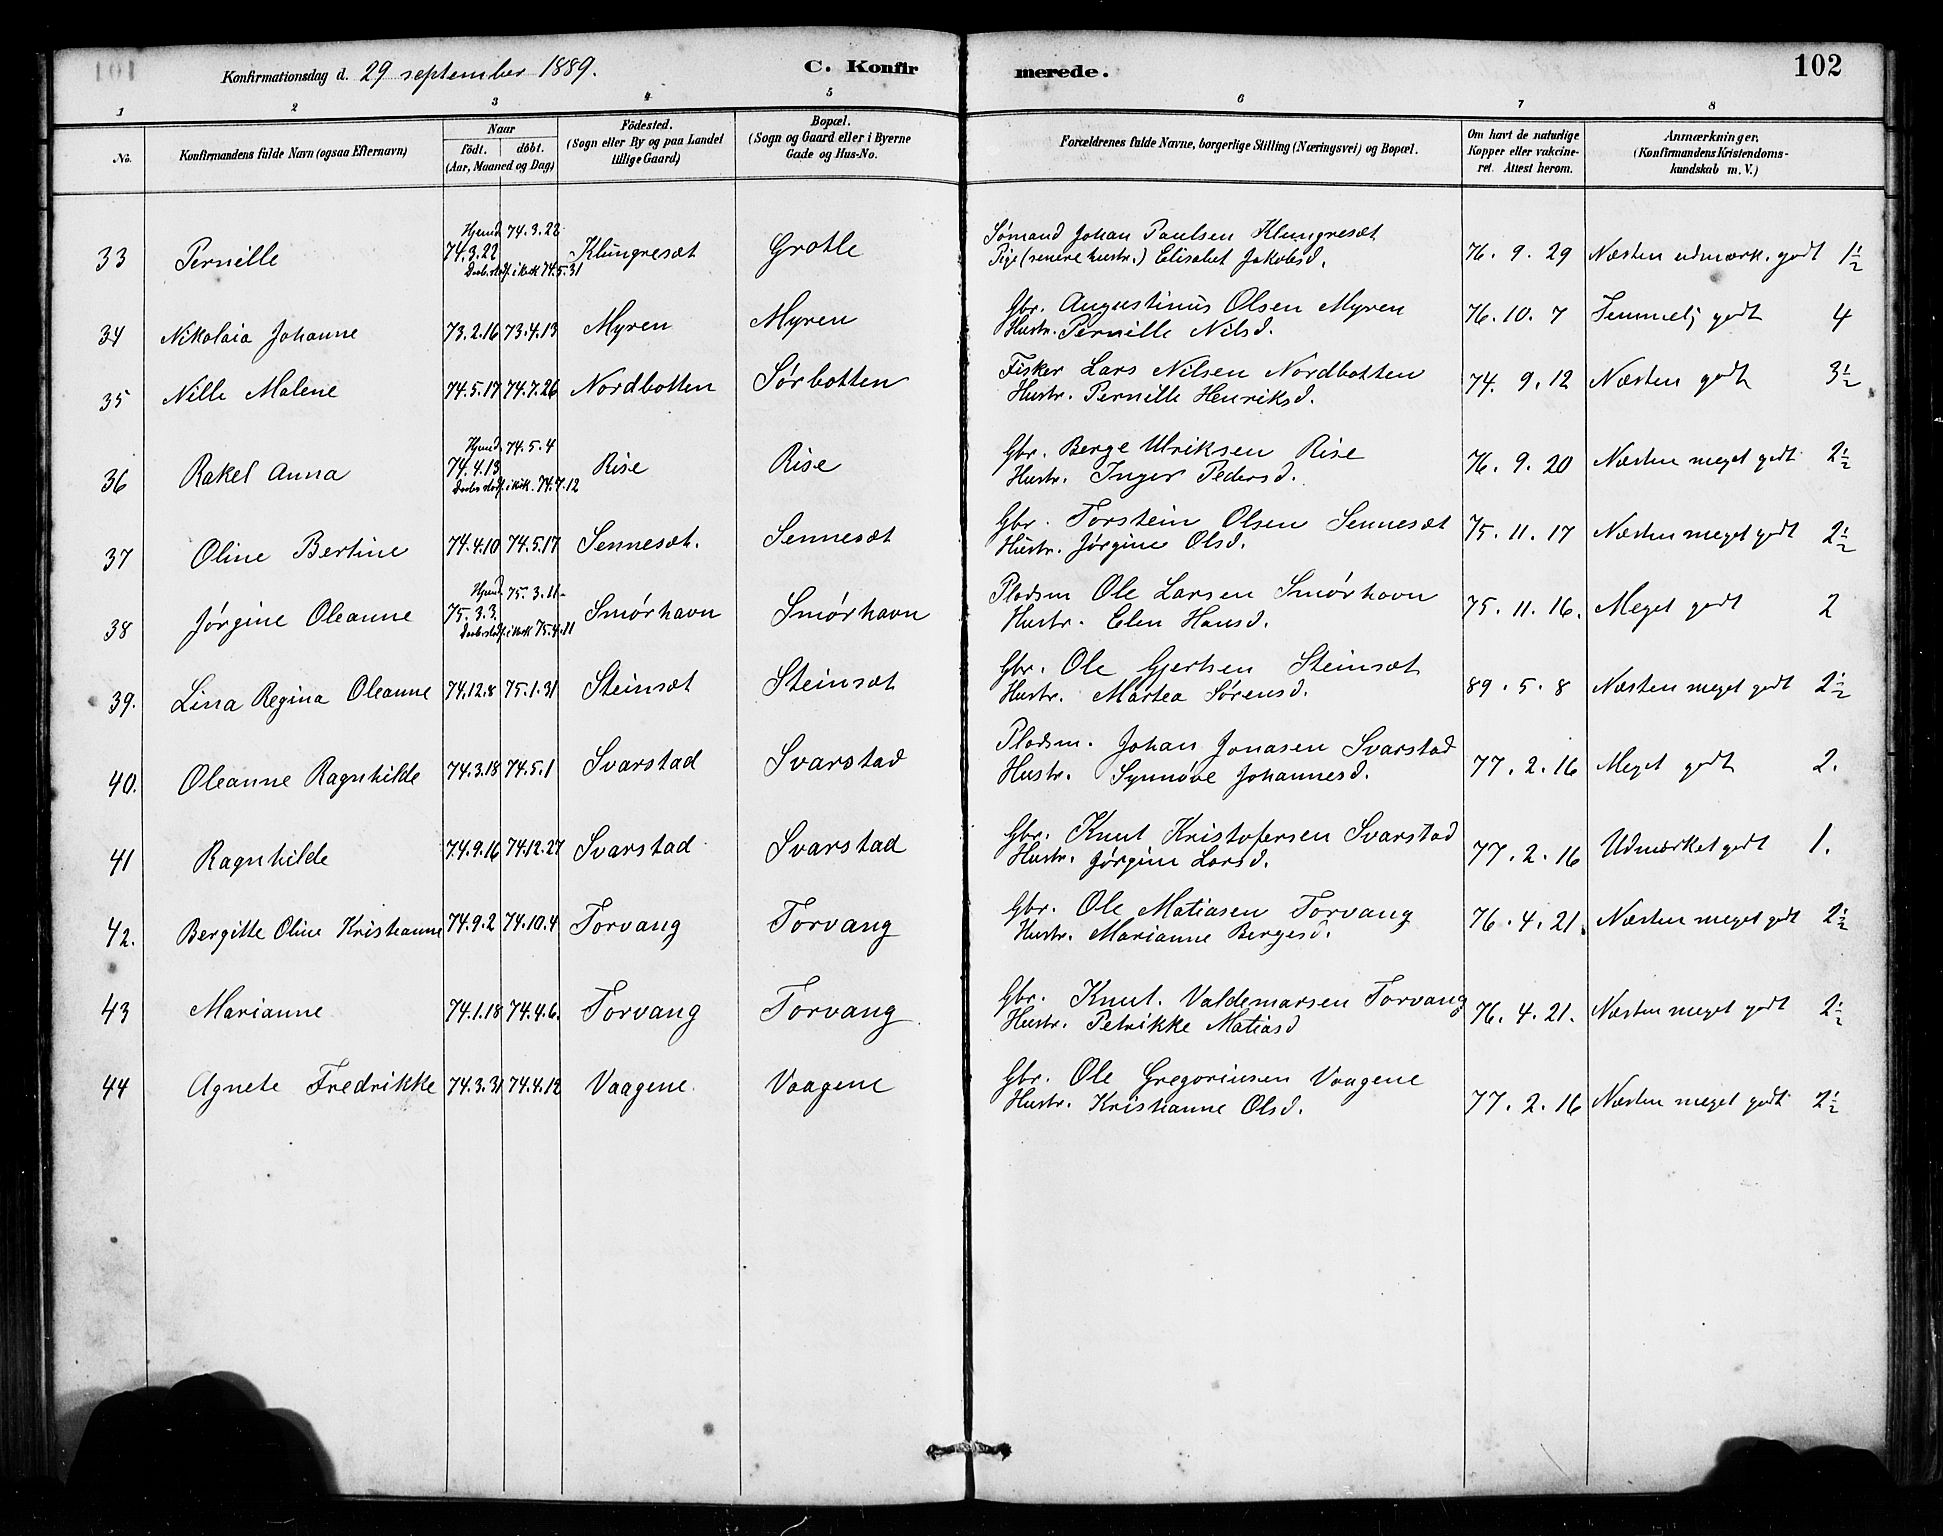 Konfirmationsdag d. 29 september 1889. C. Konfirmerede. 102
1 2 3 4 5 6 7 8
No. Konfirmandens fulde Navn (ogsaa Efternavn) Naar født. døbt. (Aar, Maaned og Dag) Fødested. (Sogn eller By og paa Landet tillige Gaard) Bopæl. (Sogn og Gaard eller i Byerne Gade og Hus-No. Forældrenes fulde Navne, borgerlige Stilling (Næringsvei) og Bopæl. Om havt de naturlige Kopper eller vakcineret. Attest herom. Anmærkninger. (Konfirmandens Kristendomskundskab m. V.)
33 Pernille 74.3.22 Hjemd. 74.3.22 Daabs stadf. i kirk 74.5.31 Klungresæt Grotle Sømand Johan Paulsen Klungresæt
Pige (senere hustr.) Elisabet Jakobsd. 76.9.29 Næsten udmærk. godt 1½
34 Nikolaia Johanne 73.2.16 73.4.13 Myren Myren Gbr. Augustinus Olsen Myren
Hustr. Pernille Nilsd. 76.10.7 Temmelj godt 4
35 Nille Malene 74.5.17 74.7.26 Nordbotten Sørbotten Fisker Lars Nilsen Nordbotten
Hustr. Pernille Henriksd. 74.9.12 Næsten godt 3½
36 Rakel Anna 74.4.13 Hjemd. 74.5.4 Daabs stadf. i kirk. 74.7.12 Rise Rise Gbr. Berge Ulriksen Rise
Hustr. Inger Pedersd. 76.9.20 Næsten meget godt 2½
37 Oline Bertine 74.4.10 74.5.17 Sennesæt. Sennesæt Gbr. Torstein Olsen Sennesæt
Hustr. Jørgine Olsd. 75.11.17 Næsten meget godt 2½
38 Jørgine Oleanne 75.3.3. Hjemd. 75.3.11. Daabs stadf. i kirk 75.4.11 Smørhavn Smørhavn Pladsm Ole Larsen Smørhavn
Hustr. Elen Hansd. 75.11.16. Meget godt 2
39. Lina Regina Oleanne 74.12.8 75.1.31 Steinsæt Steinsæt Gbr. Ole Gjertsen Steinsæt
Hustr. Martea Sørensd. 89.5.8 Næsten meget godt 2½
40. Oleanne Ragnhilde 74.3.18 74.5.1 Svarstad Svarstad Pladsm. Johan Jonasen Svarstad
Hustr. Synnøve Johannesd. 77.2.16 Meget godt 2.
41 Ragnhilde 74.9.16 74.12.27 Svarstad Svarstad Gbr. Knut Kristofersen Svarstad
Hustr. Jørgine Larsd. 77.2.16 Udmærket godt 1.
42. Bergitte Oline Kristianne 74.9.2 74.10.4 Torvang Torvang Gbr. Ole Matiasen Torvang
Hustr. Marianne Bergesd. 76.4.21. Næsten meget godt 2½
43 Marianne 74.1.18 74.4.6. Torvang Torvang Gbr. Knut. Valdemarsen Torvang
Hustr. Petrikke Matiasd 76.4.21. Næsten meget godt 2½
44 Agnete Fredrikke 74.3.31 74.4.12 Vaagene Vaagene Gbr. Ole Gregoriusen Vaagene
Hustr. Kristianne Olsd. 77.2.16 Næsten meget godt 2½